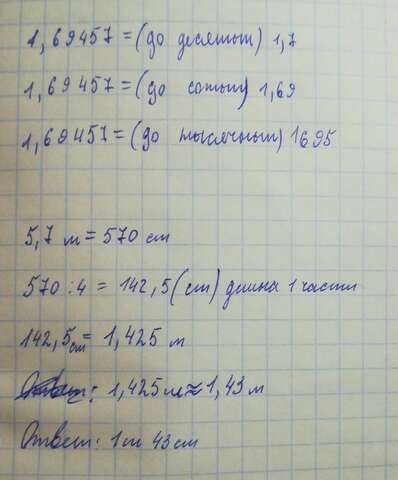 1,69457 = (до десятых) 1,7
1,69457 = (до сотых) 1,69
1,69457 = (до тысячных) 1695
5,7 м = 570 см
570 : 4 = 142,5 (см) длина 1 части
142,5см = 1,425 м
Ответ: 1,425м ≈ 1,43 м
Ответ: 1м 43см